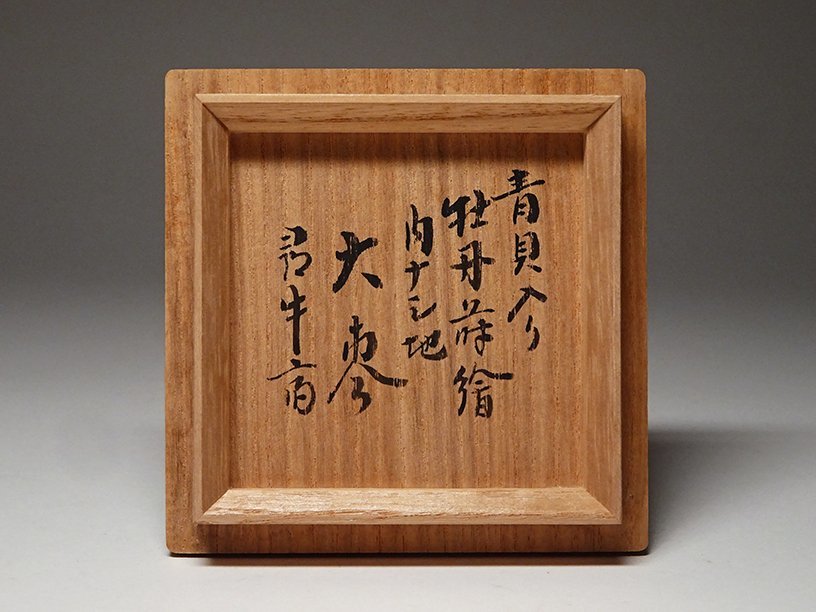 青貝入り
牡丹蒔繪
内ナシ地
大棗
尋牛斎